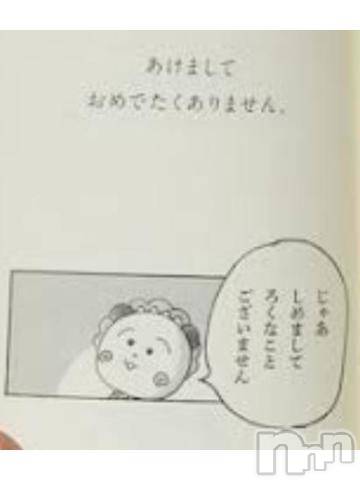 あけまして
おめでたくありません。
じゃあ
しめまして
ろくなこと
ございません